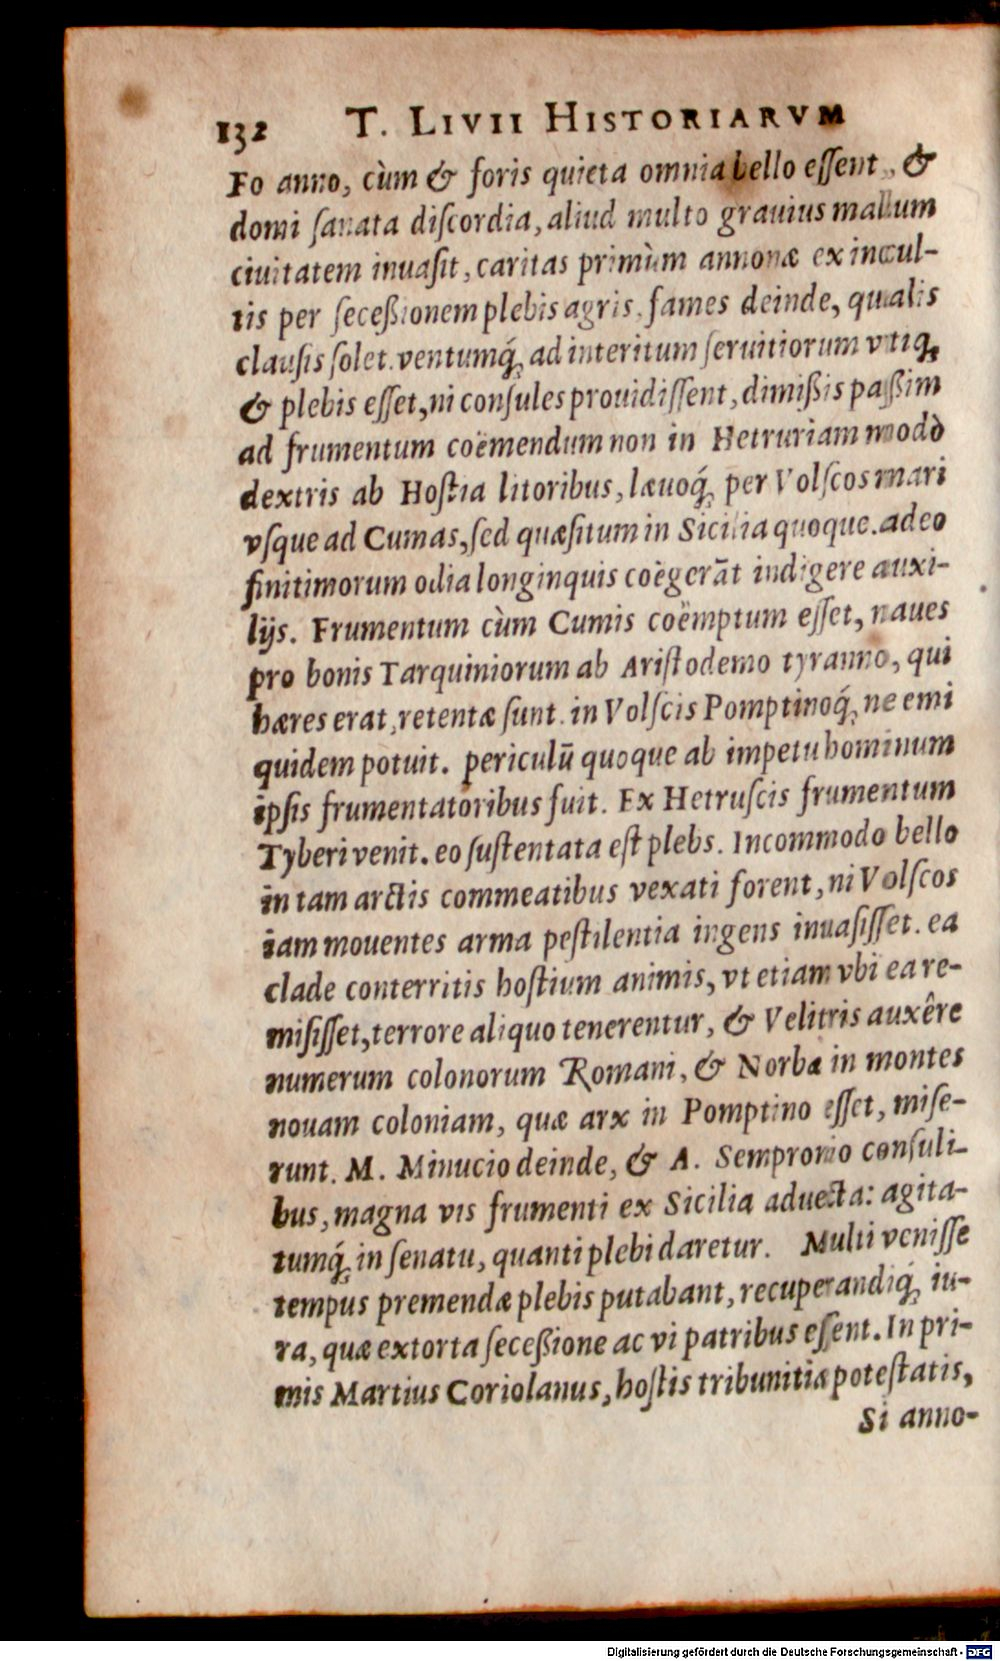 132 T. LIVII HISTORIARVM
Eo anno, cùm & foris quieta omnia bello eſſent, &
domi ſanata diſcordia, aliud multo grauius malum
ciuitatem inuaſit, caritas primùm annonæ ex incul-
tis per ſeceßionem plebis agris, fames deinde, qualis
clauſis ſolet. ventumq́; ad interitum ſeruitiorum vtiq;
& plebis eſſet, ni conſules prouidiſſent, dimißis paßim
ad frumentum coëmendum non in Hetruriam modò
dextris ab Hoſtia litoribus, læuoq́; per Volſcos mari
vſque ad Cumas, ſed quæſitum in Sicilia quoque. adeo
finitimorum odia longinquis coëgerāt indigere auxi-
lijs. Frumentum cùm Cumis coëmptum eſſet, naues
pro bonis Tarquiniorum ab Ariſtodemo tyranno, qui
hæres erat, retentæ ſunt. in Volſcis Pomptinoq́; ne emi
quidem potuit. periculū quoque ab impetu hominum
ipſis frumentatoribus fuit. Ex Hetruſcis frumentum
Tyberi venit. eo ſuſtentata eſt plebs. Incommodo bello
in tam arctis commeatibus vexati forent, ni Volſcos
iam mouentes arma peſtilentia ingens inuaſiſſet. ea
clade conterritis hoſtium animis, vt etiam vbi ea re-
miſiſſet, terrore aliquo tenerentur, & Velitris auxêre
numerum colonorum Romani, & Norbæ in montes
nouam coloniam, quæ arx in Pomptino eſſet, miſe-
runt. M. Minucio deinde, & A. Sempronio conſuli-
bus, magna vis frumenti ex Sicilia aduecta: agita-
tumq́; in ſenatu, quanti plebi daretur. Multi veniſſe
tempus premendæ plebis putabant, recuperandiq́; iu-
ra, quæ extorta ſeceßione ac vi patribus eſſent. In pri-
mis Martius Coriolanus, hoſtis tribunitiæ poteſtatis,
Si anno-
Digitalisierung gefördert durch die Deutsche Forschungsgemeinschaft - DFG